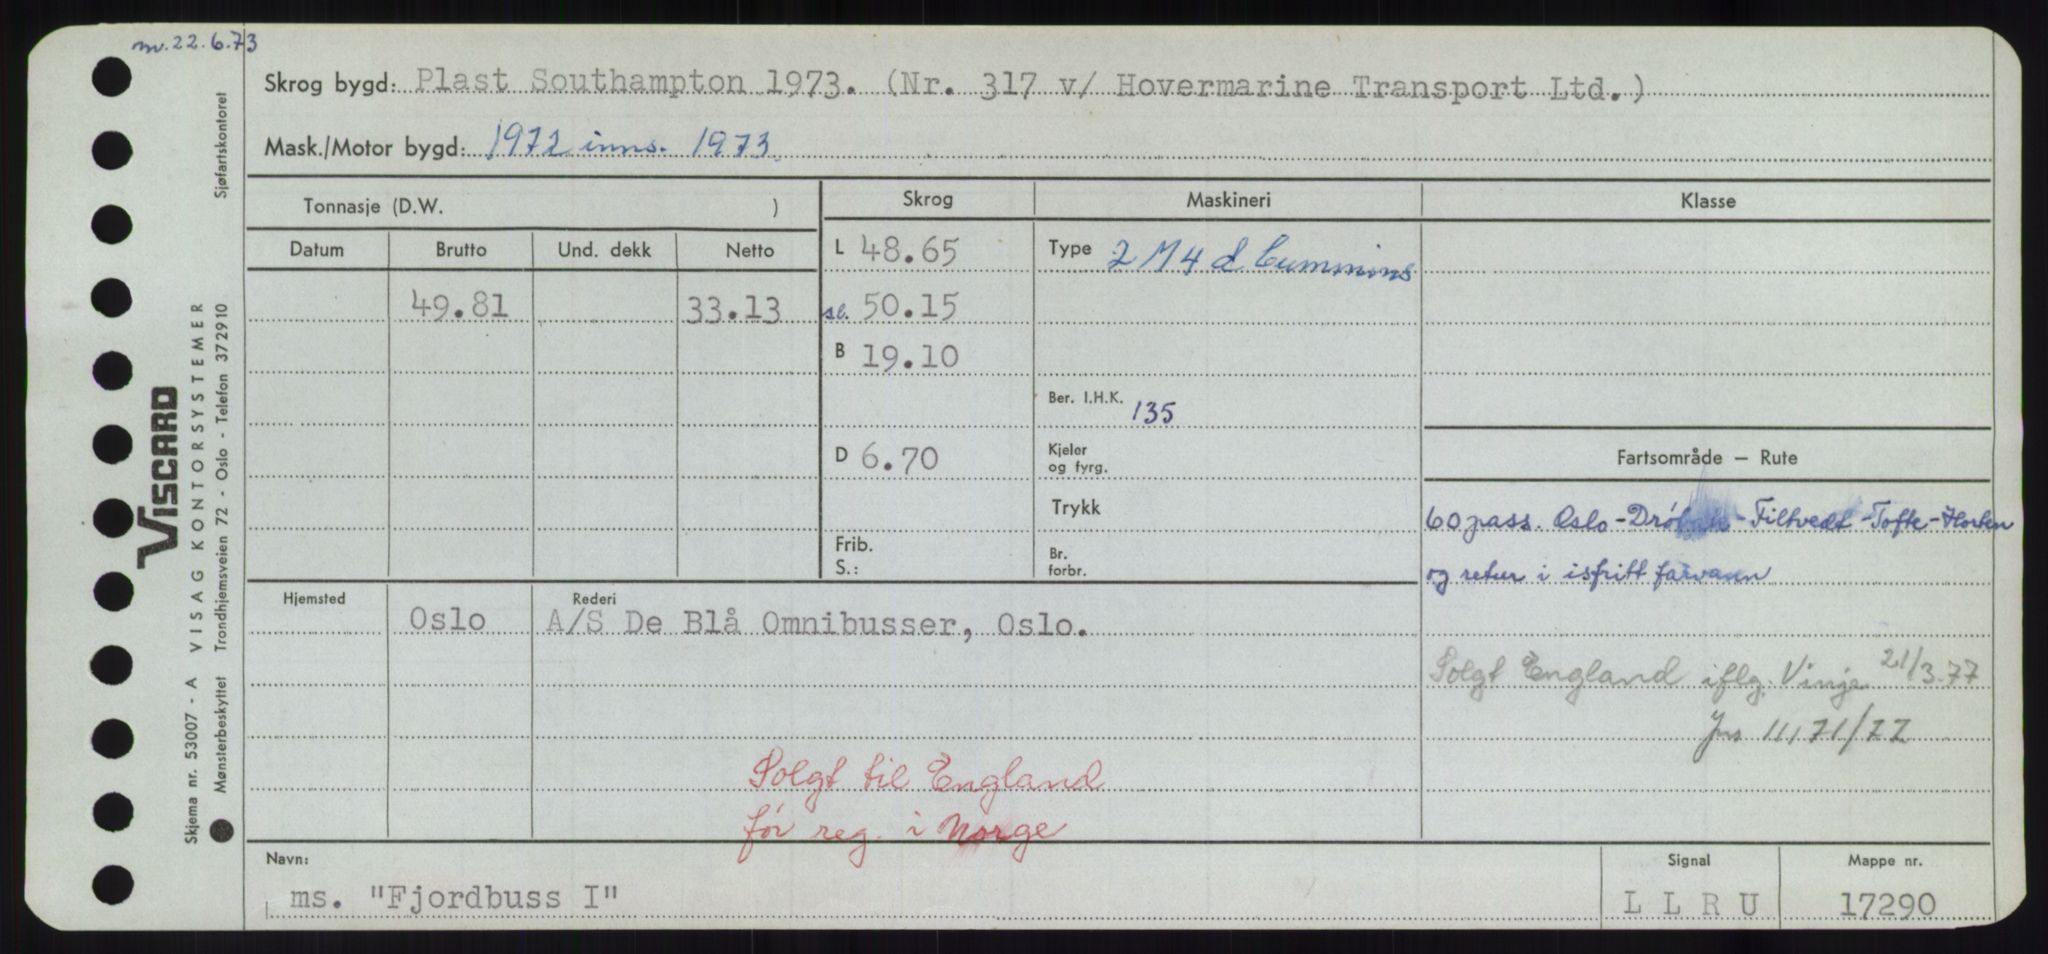 mv. 22.6.73
Skrog bygd: Plast Southampton 1973. (Nr. 317 v/ Hovermarine Transport Ltd.)
Mask./Motor bygd: 1972 inns. 1973.
Tonnasje (D.W. )
Skrog
Maskineri
Klasse
Datum Brutto Und. dekk Netto
L 48.65
Type 2 M 4 d. Cummins
49.81 33.13
sl. 50.15
B 19.10
Ber. I.H.K. 135
D 6.70
Kjeler
og fyrg.
Fartsområde – Rute
Trykk
60 pass. Oslo-Drøbak-Filtvedt-Tofte-Horten
Frib.
S.:
Br.
forbr.
og retur i isfritt farvann
Hjemsted Oslo
Rederi A/S De Blå Omnibusser, Oslo.
Solgt England iflg. Vinje 21/3.77
11,71/77
Solgt til England
før reg. i Norge
Navn: ms. "Fjordbuss I"
Signal L L R U
Mappe nr. 17290
Sjøfartskontoret
VISCARD
VISAG KONTORSYSTEMER
Trondhjemsveien 72 - Oslo - Telefon 372910
Skjema nr. 53007 - A
Mønsterbeskyttet